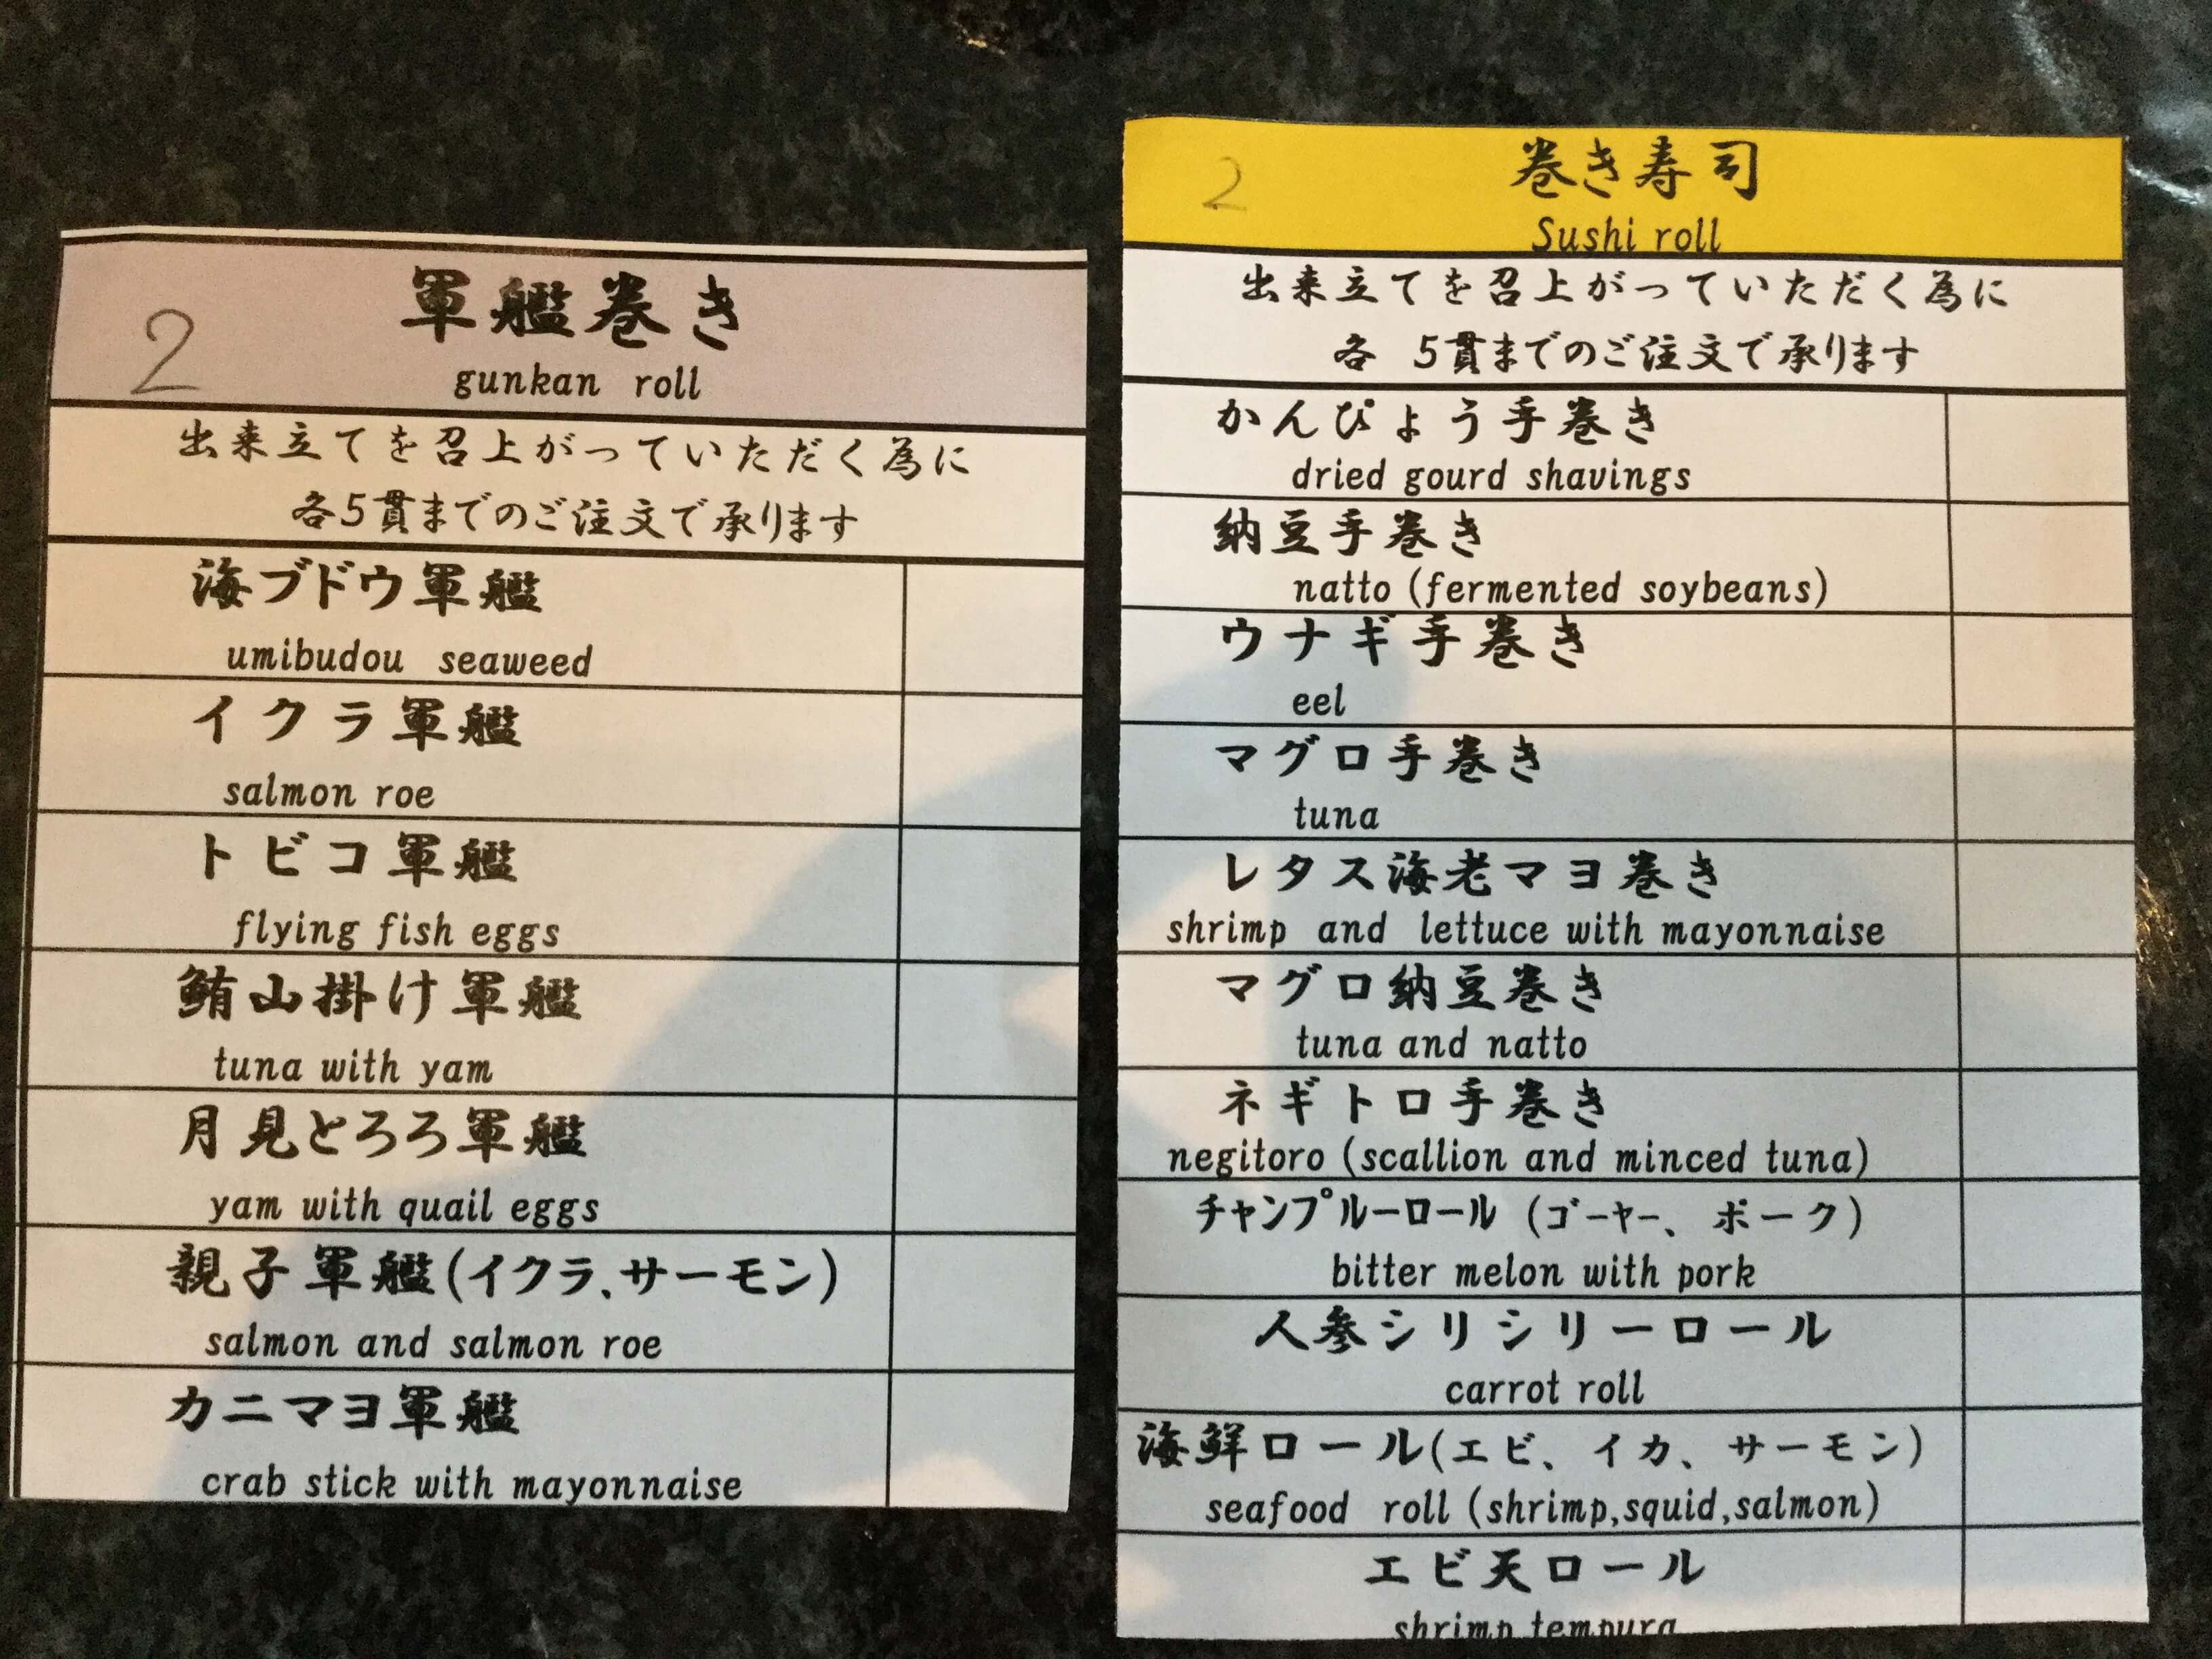 2
軍艦巻き
gunkan roll
出来立てを召上がっていただく為に
各5貫までのご注文で承ります
海ブドウ軍艦
umibudou seaweed
イクラ軍艦
salmon roe
トビコ軍艦
flying fish eggs
鮪山掛け軍艦
tuna with yam
月見とろろ軍艦
yam with quail eggs
親子軍艦(イクラ、サーモン)
salmon and salmon roe
カニマヨ軍艦
crab stick with mayonnaise
2
巻き寿司
Sushi roll
出来立てを召上がっていただく為に
各 5貫までのご注文で承ります
かんぴょう手巻き
dried gourd shavings
納豆手巻き
natto (fermented soybeans)
ウナギ手巻き
eel
マグロ手巻き
tuna
レタス海老マヨ巻き
shrimp and lettuce with mayonnaise
マグロ納豆巻き
tuna and natto
ネギトロ手巻き
negitoro (scallion and minced tuna)
チャンプルーロール (ゴーヤー、ポーク)
bitter melon with pork
人参シリシリーロール
carrot roll
海鮮ロール(エビ、イカ、サーモン)
seafood roll (shrimp,squid,salmon)
エビ天ロール
shrimp tempura